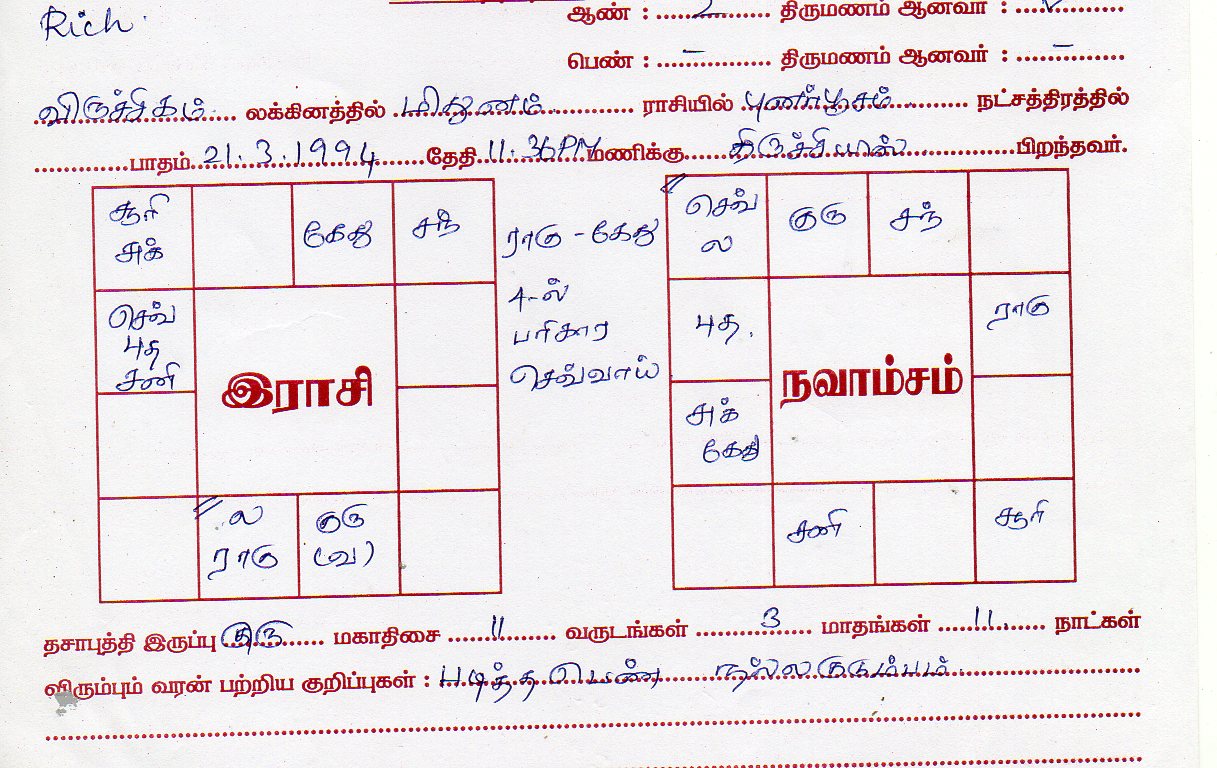 Rich.
ஆண் : 2 திருமணம் ஆனவர் : ✓
பெண் : – திருமணம் ஆனவர் : –
விருச்சிகம் லக்கினத்தில் மிதுனம் ராசியில் புனர்பூசம் நட்சத்திரத்தில்
பாதம் 21.3.1994 தேதி 11.36PM மணிக்கு திருச்சியால் பிறந்தவர்.
சூரி
சுக்
கேது
சந்
செவ்
புத
சனி
இராசி
ல
ராகு
குரு
(வ)
ராகு - கேது
4-ல்
பரிகார
செவ்வாய்
செவ்
ல
குரு
சந்
புத.
ராகு
நவாம்சம்
சுக்
கேது
சனி
சூரி
தசாபுத்தி இருப்பு குரு மகாதிசை 11 வருடங்கள் 3 மாதங்கள் 11 நாட்கள்
விரும்பும் வரன் பற்றிய குறிப்புகள் : படித்த பெண் நல்லகுடும்பம்